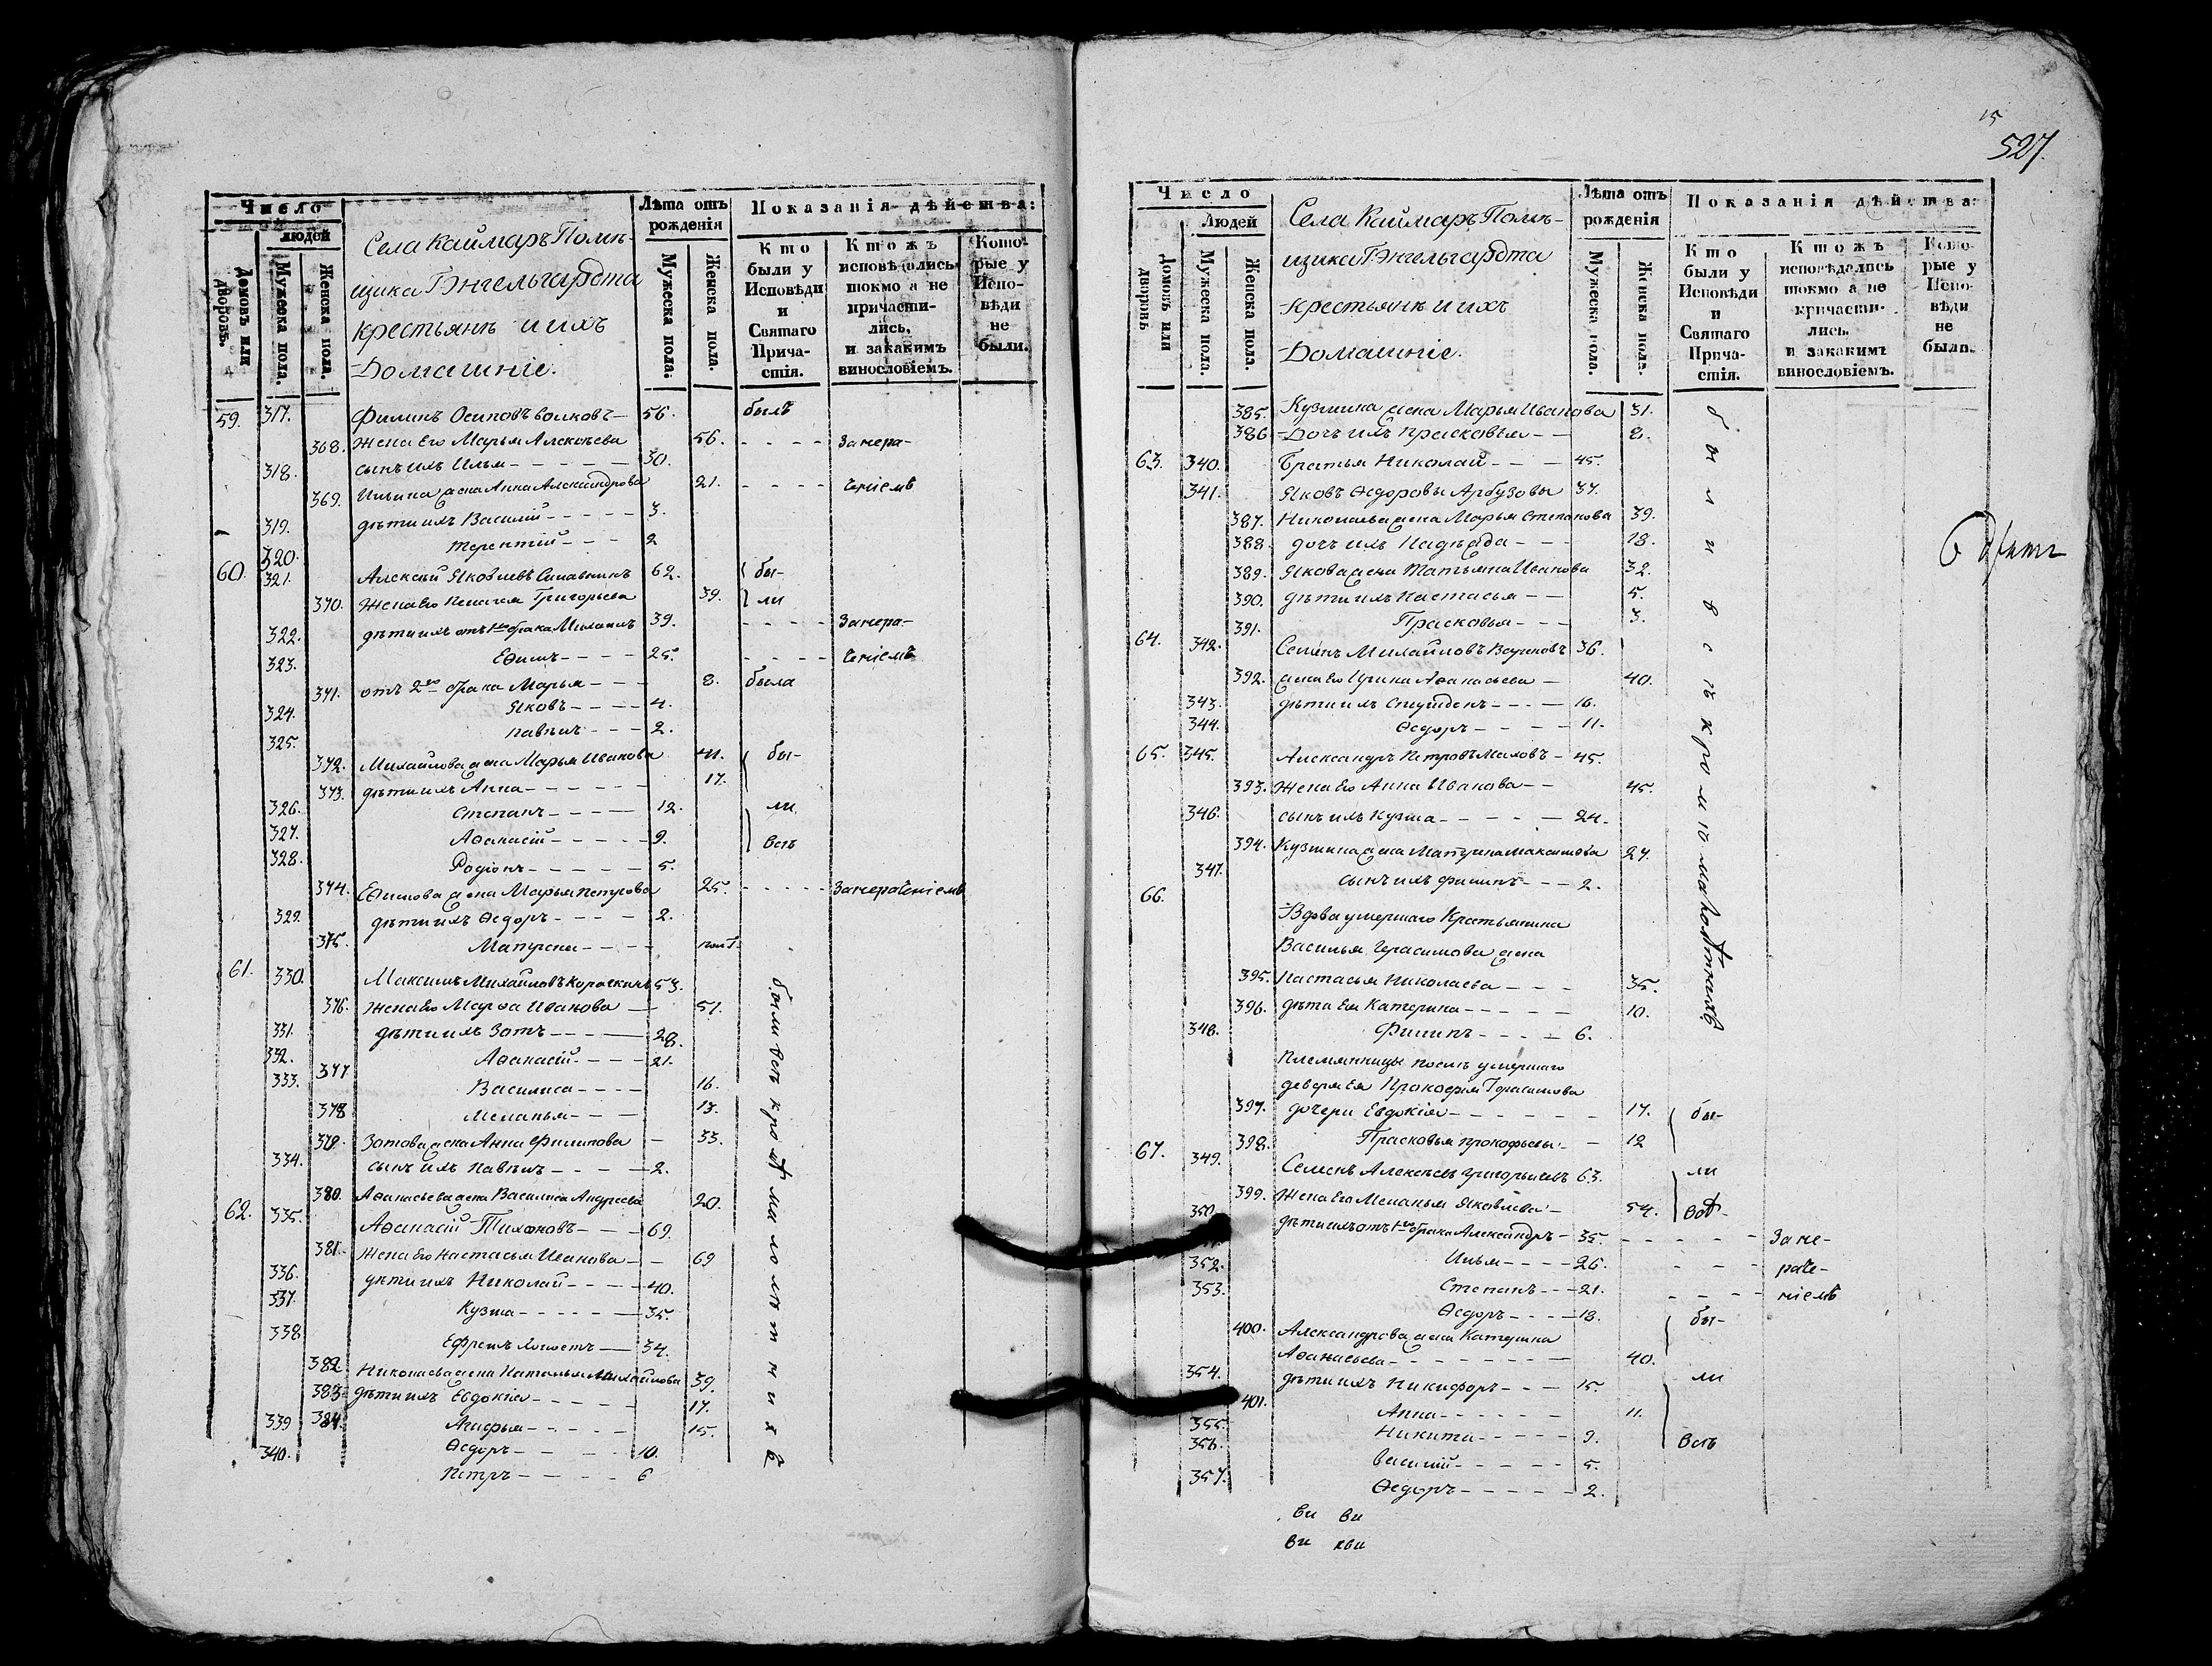 15
527.
Число
людей
Домовъ или дворовъ.
Мужеска пола.
Женска пола.
Села Каймаръ Помѣ-
щика Гэнгельгардта
крестьянѣ и ихъ
Домашніе.
Лѣта отъ рожденія
Мужеска пола.
Женска пола.
Показанія дѣйства:
Кто были у Исповѣди и Святаго Прича-стія.
Ктожъ исповѣдались токмо а не причасти-лись, и закакимъ винословіемъ.
Кото-рые у Испо-вѣди не были.
59. 317. Филипъ Осиповъ Волковъ 56. былъ
368. Жена Его Марья Алексѣева 56. Занера-
318. сынъ ихъ Илья 30.
369. Ильина жена Анна Александрова 21. ченіемъ
319. дѣти ихъ Василій 3.
320. Терентій 2
60. 321. Алексѣй Яковлевъ 62. бы-
370. Жена Его Пелагея Григорьева 39. ли
322. дѣти ихъ отъ 1го брака Михаилъ 39. Занера-
323. Ефимъ 25. ченіемъ
371. отъ 2го брака Марья 8. была
324. Яковъ 4.
325. Павелъ 2.
372. Михайлова жена Марья Иванова 41. бы-
373. дѣти ихъ Анна 17.
326. Степанъ 12. ли
327. Аѳанасій 9.
328. Родіонъ 5. всѣ
374. Ефимова жена Марья Петрова 25. Занераченіемъ
329. дѣти ихъ Ѳедоръ 2.
375. Матрена пол г.
61. 330. Максимъ Михайловъ Корочкинъ 53.
376. Жена Его Марѳа Иванова 51.
331. дѣти ихъ Зотъ 28.
332. Аѳанасій 21.
333. 377 Василиса 16.
378 Меланья 13.
379. Зотова жена Анна Филипова 33.
334. сынъ ихъ Павелъ 2.
380. Аѳанасьева жена Василиса Андреева 20.
62. 335. Аѳанасій Тихоновъ 69.
381. Жена Его Настасья Иванова 69
336. дѣти ихъ Николай 40.
337. Кузма 35.
338. Ефремъ холостъ 34.
382 Николаева жена Наталья Михайлова 39.
383. дѣти ихъ Евдокія 17.
339 384. Агафья 15.
340. Ѳедоръ 10.
Петръ 6
были всѣ кромѣ малолѣтнихъ
Число
Людей
Домовъ или дворовъ
Мужеска пола.
Женска пола.
Села Каймаръ Помѣ-
щика Гэнгельгардта
Крестьянѣ и ихъ
Домашніе.
Лѣта отъ рожденія
Мужеска пола.
Женска пола.
Показанія дѣйства:
Кто были у Исповѣди и Святаго Прича-стія.
Ктожъ исповѣдались токмо а не причасти-лись. и закакимъ винословіемъ.
Кото-рые у Испо-вѣди не были.
385. Кузмина жена Марья Иванова 31.
386 Дочь ихъ Прасковья 8.
63. 340. Братья Николай 45.
341. Яковъ Ѳедоровы Арбузовы 37.
387. Николаева жена Марья Степанова 39.
388. дочь ихъ Надежда 18.
389. Якова жена Татьяна Иванова 32.
390. дѣти ихъ Настасья 5.
391. Прасковья 3.
64. 342. Семенъ Михайловъ 36.
392. жена Его Ирина Аѳанасьева 40.
343. дѣти ихъ 16.
344. Ѳедоръ 11.
65. 345. Александръ Петровъ Маловъ 45.
393. Жена Его Анна Иванова 45.
346. сынъ ихъ Кузма 24.
394. Кузмина жена Матрена Максимова 27.
347. сынъ ихъ Филипъ 2.
66.
Вдова умершаго Крестьянина
Василья Герасимова жена
395. Настасья Николаева 35.
396. дѣти Ея Катерина 10.
348. Филипъ 6.
Племянницы послѣ умершаго
деверя Ея Прокофія Герасимова
397. дочери Евдокія 17. бы-
398. Прасковья Прокофьевы 12
67. 349. Семенъ Алексѣевъ Григорьевъ 63. ли
399. Жена Его Меланья Яковлева 54. всѣ
350 дѣти ихъ отъ 1го брака Александръ 35. Зане-
352. Илья 26. раче-
353. Степанъ 21. ніемъ
Ѳедоръ 18. бы-
400. Александрова жена Катерина
Аѳанасьева 40.
354. дѣти ихъ Никифоръ 15. ли
401. Анна 11.
355. Никита 9. всѣ
356. Василій 5.
357. Ѳедоръ 2.
были всѣ кромѣ малолѣтнихъ